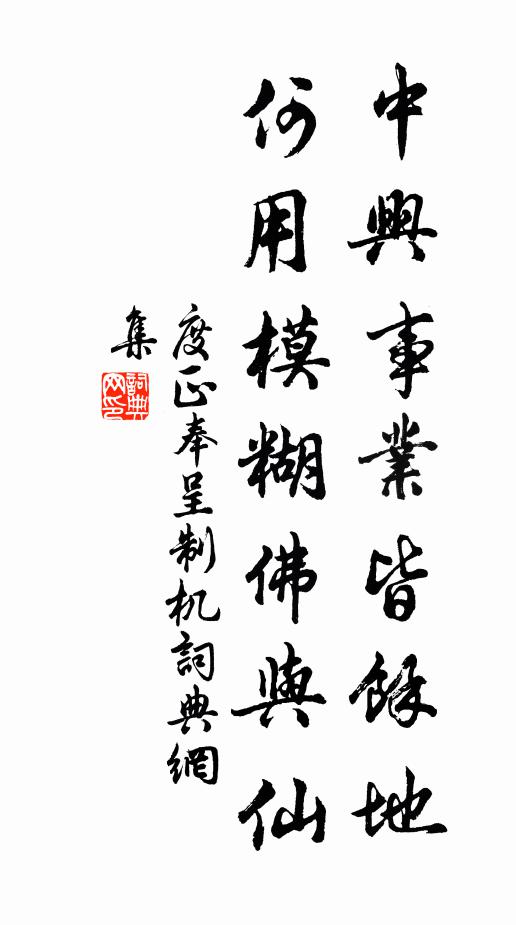 中興事業皆餘地
何用模糊佛與仙
度正奉呈制机詞典網
集
詞典
网印